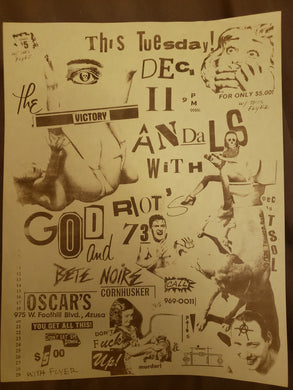 This Tuesday!
DEC.
11 9 PM
$5
w/ this
FLYER
FOR ONLY $5.00!
w/ this
FLYER
the
VICTORY
ANDALS
WITH
GOD RIOT'S
and 73
BETE NOIRE
CORNHUSKER
OSCAR'S
975 W. Foothill Blvd., Azusa
CALL
969-0011
DEC
TSOL
YOU GET ALL THIS!
$5.00
WITH FLYER
DON'T
Fuck
Up!
murder!